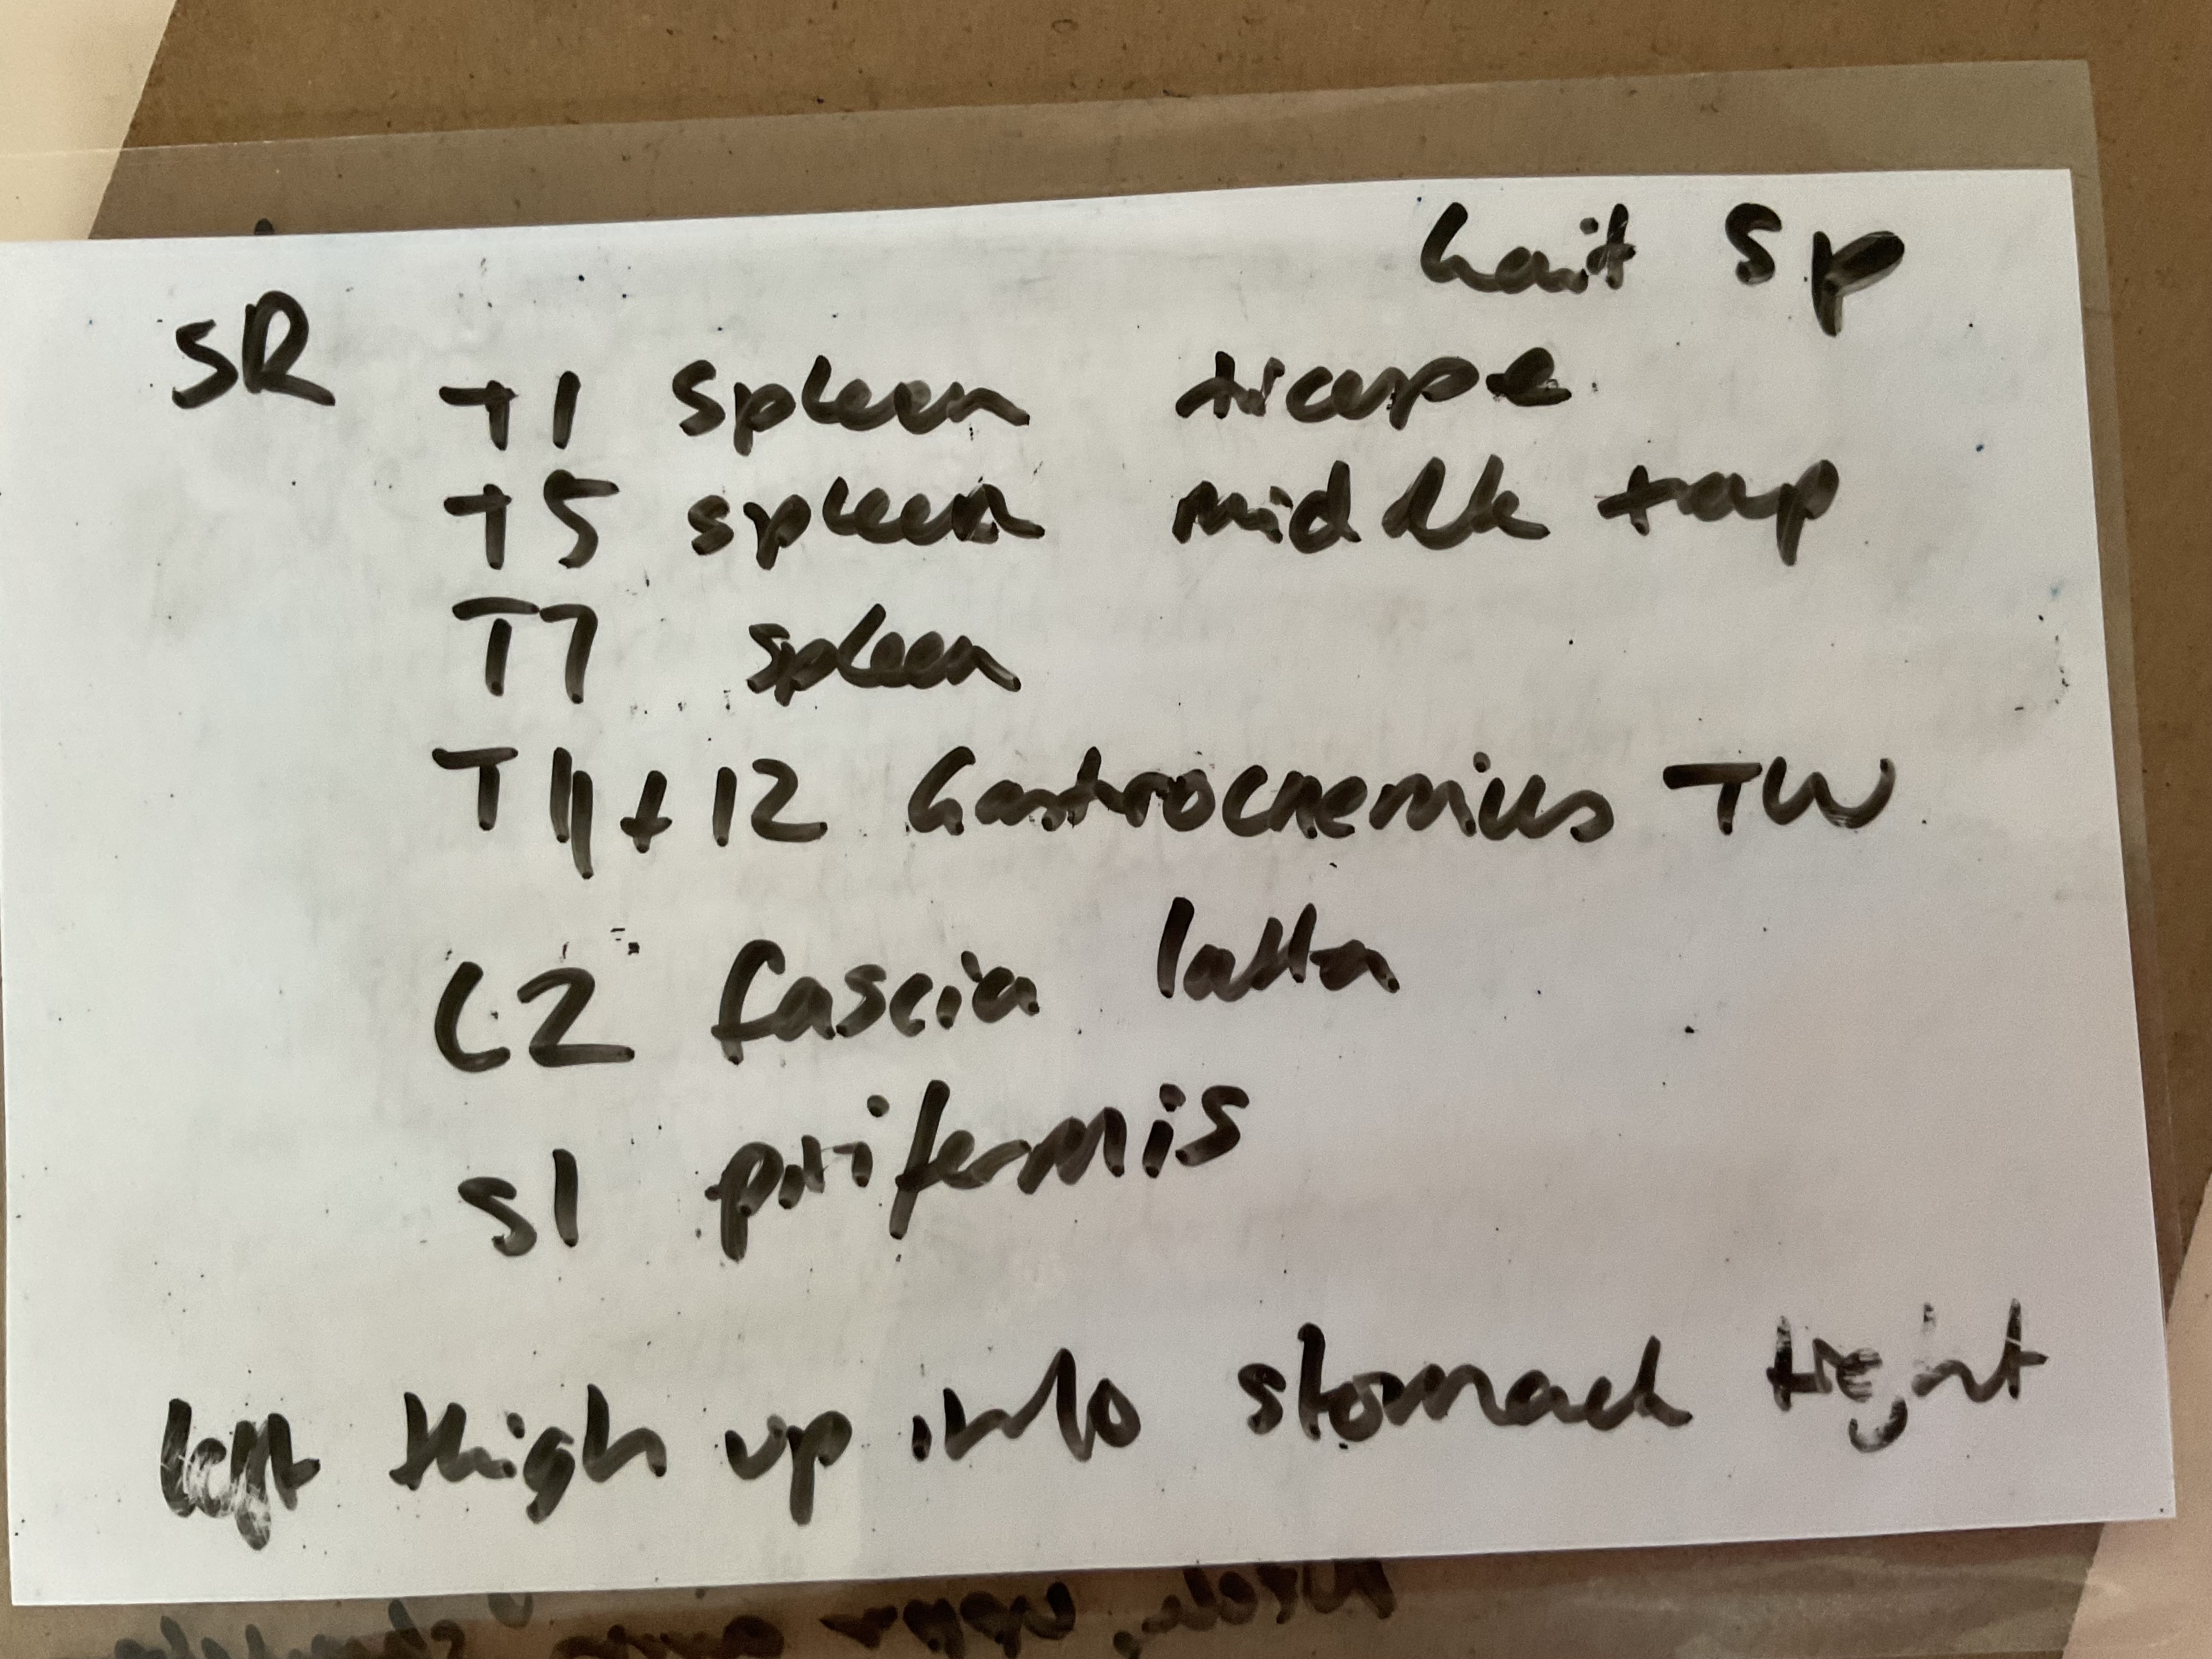 Gait Sp
SR
T1 spleen tricepe
T5 spleen middle trap
T7 spleen
T11 + 12 Gastrocnemius TW
C2 fascia latta
S1 piriformis
left thigh up into stomach tight